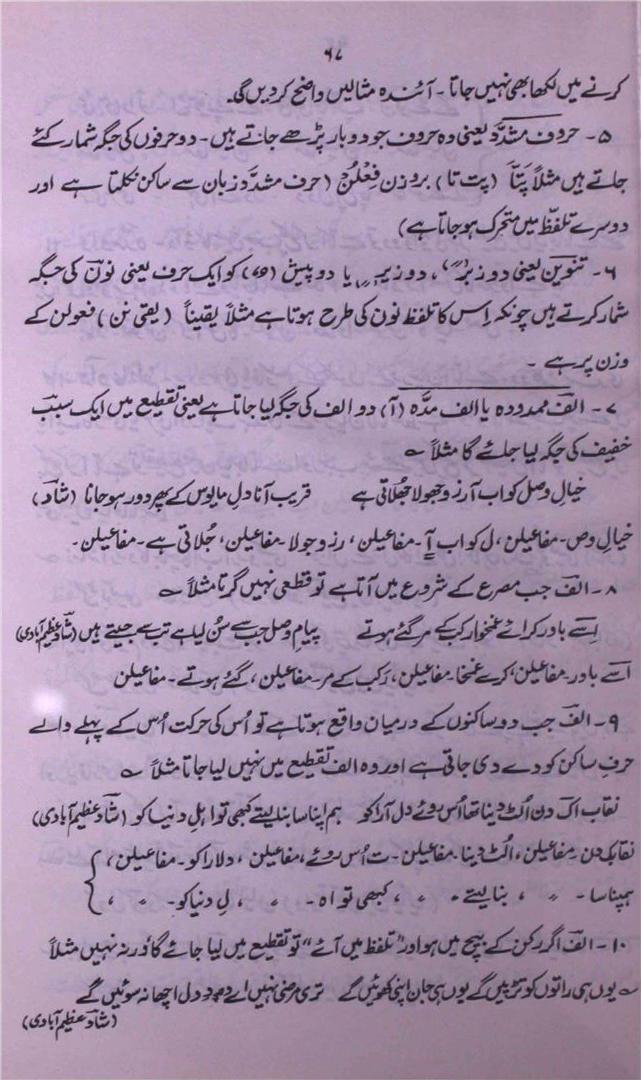 ۶۷
کرنے میں لکھا بھی نہیں جاتا - آئندہ مثالیں واضح کر دیں گی۔
۵ - حروف مشدّد یعنی وہ حروف جو دوبار پڑھے جاتے ہیں - دو حرفوں کی جگہ شمار کئے
جاتے ہیں مثلاً پَتّا (پت تا) بروزن فِعْلُنْ (حرف مشدّد زبان سے ساکن نکلتا ہے اور
دوسرے تلفّظ میں متحرک ہو جاتا ہے)
۶ - تنوین یعنی دو زبر، دو زیر یا دو پیش کو ایک حرف یعنی نون کی جگہ
شمار کرتے ہیں چونکہ اِس کا تلفظ نون کی طرح ہوتا ہے مثلاً یقیناً (یقی نن) فعولن کے
وزن پر ہے -
۷ - الف ممدودہ یا الف مدّہ (آ) دو الف کی جگہ لیا جاتا ہے یعنی تقطیع میں ایک سبب
خفیف کی جگہ لیا جائے گا مثلاً ؎
خیالِ وصل کو اب آرزو جھولا جھلاتی ہے قریب آنا دلِ مایوس کے پھر دور ہو جانا (شاد)
خیالِ وص - مفاعیلن، ل کو اب آ - مفاعیلن، رزو جولا - مفاعیلن، جُلاتی ہے - مفاعیلن -
۸ - الف جب مصرع کے شروع میں آتا ہے تو قطعی نہیں گرتا مثلاً ؎
اِسے باور کر اے غمخوار کب کے مر گئے ہوتے پیامِ وصل جب سے سُن لیا ہے تب سے جیتے ہیں (شاد عظیم آبادی)
اسے باور - مفاعیلن، کرے غمخا - مفاعیلن، رکب کے مر - مفاعیلن، گئے ہوتے - مفاعیلن
۹ - الف جب دو ساکنوں کے درمیان واقع ہوتا ہے تو اُس کی حرکت اُس کے پہلے والے
حرفِ ساکن کو دے دی جاتی ہے اور وہ الف تقطیع میں نہیں لیا جاتا مثلاً ؎
نقاب اک دن اُلٹ دینا تھا اُس روئے دل آرا کو ہم اپنا سا بنا لیتے کبھی تو اہلِ دنیا کو (شاد عظیم آبادی)
نقابک دن - مفاعیلن، اُلٹ دینا - مفاعیلن - ت اُس روئے، مفاعیلن، دلارا کو - مفاعیلن،
ہمپنا سا - 〃، بنا لیتے 〃، کبھی تو اہ - 〃، لِ دنیا کو - 〃،
۱۰ - الف اگر رکن کے بیچ میں ہو اور "تلفظ میں آئے" تو تقطیع میں لیا جائے گا وُرنہ نہیں مثلاً
؎ یوں ہی راتوں کو تڑپیں گے یوں ہی جان اپنی کھوئیں گے تری مرضی نہیں اے دردِ دل اچھا نہ سوئیں گے
(شاد عظیم آبادی)